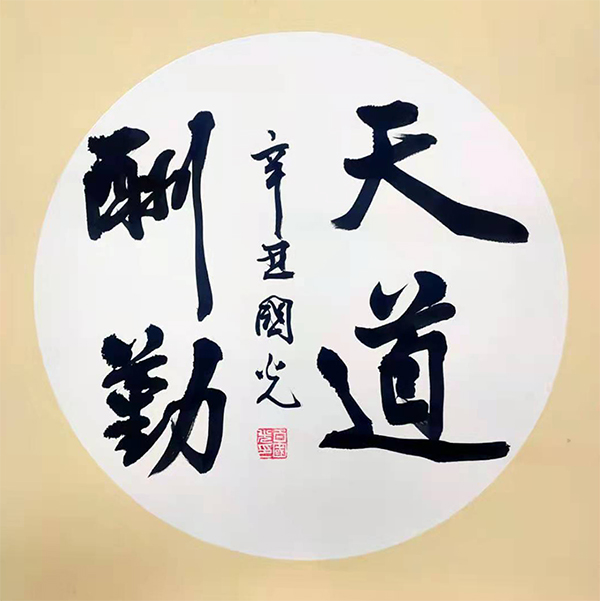 天道
酬勤
辛丑國光